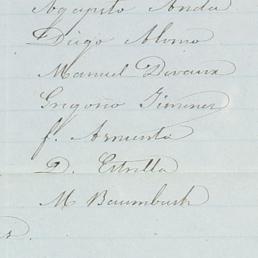 Agapito Anda
Diego Alonso
Manuel Devaux
Gregorio Jimenez
f. Armenta
D. Estrella
M Baumbush
s.